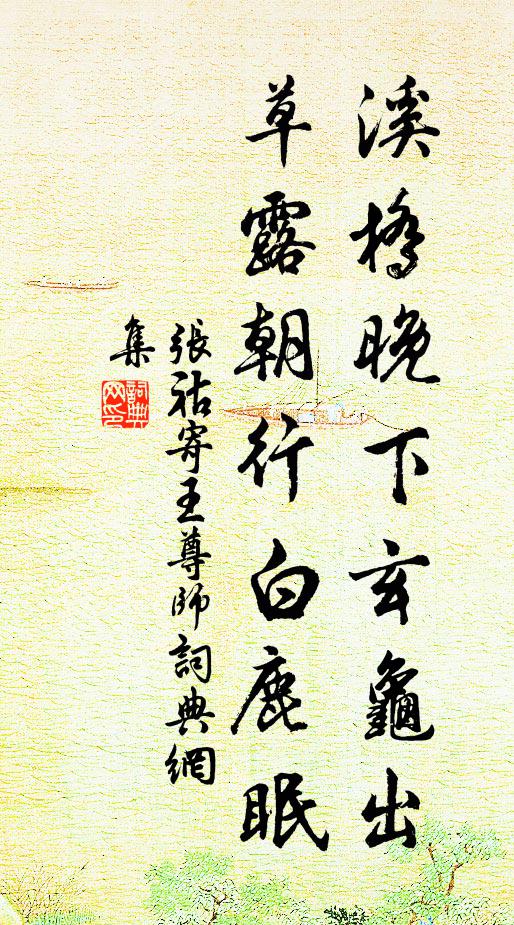 溪橋晚下玄龜出
草露朝行白鹿眠
張祜寄王尊師詞典網
集
詞典
网印